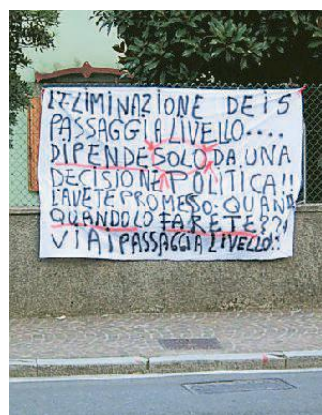 L'ELIMINAZIONE DEI 5
PASSAGGI A LIVELLO....
DIPENDE SOLO DA UNA
DECISIONE POLITICA!!
L'AVETE PROMESSO: QUANDO
QUANDO LO FARETE??
VIA I PASSAGGI A LIVELLO!